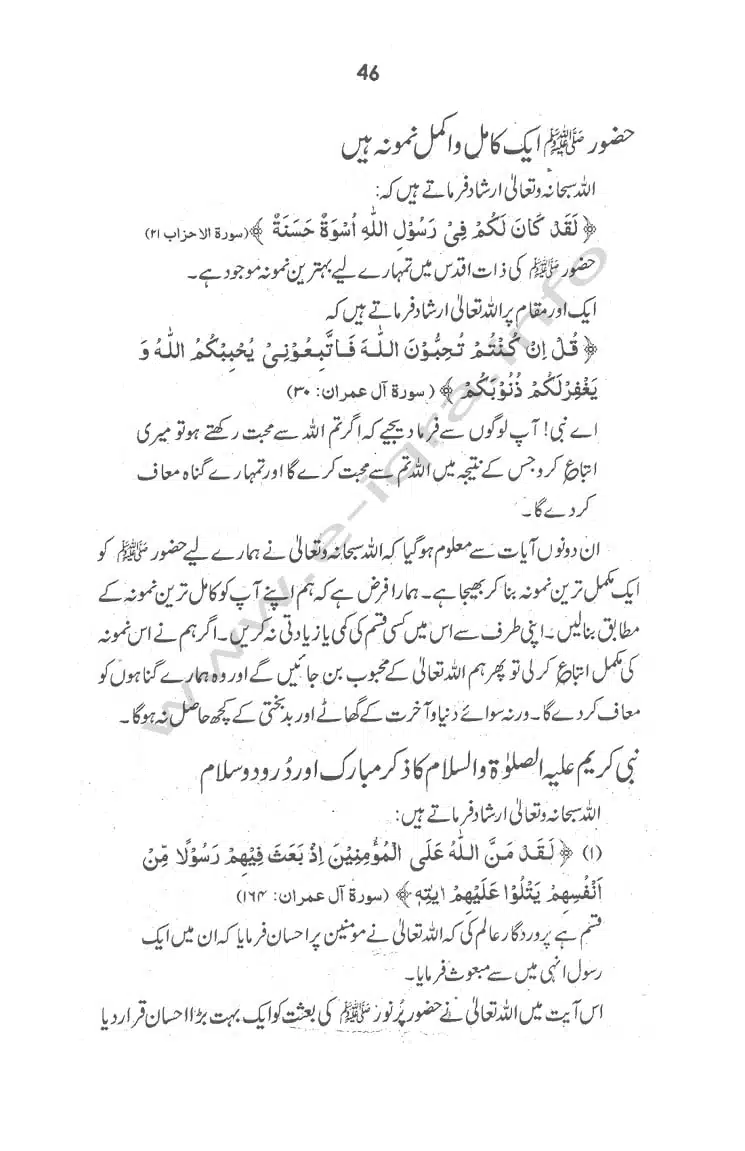 46
حضور ﷺ ایک کامل و اکمل نمونہ ہیں
اللہ سبحانہ وتعالیٰ ارشاد فرماتے ہیں کہ:
﴿ لَقَدْ كَانَ لَكُمْ فِيْ رَسُوْلِ اللّٰهِ اُسْوَةٌ حَسَنَةٌ ﴾ (سورة الاحزاب ۲۱)
حضور ﷺ کی ذات اقدس میں تمہارے لیے بہترین نمونہ موجود ہے۔
ایک اور مقام پر اللہ تعالیٰ ارشاد فرماتے ہیں کہ
﴿ قُلْ اِنْ كُنْتُمْ تُحِبُّوْنَ اللّٰهَ فَاتَّبِعُوْنِيْ يُحْبِبْكُمُ اللّٰهُ وَ
يَغْفِرْلَكُمْ ذُنُوْبَكُمْ ﴾ (سورة آل عمران: ۳۰)
اے نبی! آپ لوگوں سے فرما دیجیے کہ اگر تم اللہ سے محبت رکھتے ہو تو میری
اتباع کرو جس کے نتیجہ میں اللہ تم سے محبت کرے گا اور تمہارے گناہ معاف
کر دے گا۔
ان دونوں آیات سے معلوم ہو گیا کہ اللہ سبحانہ وتعالیٰ نے ہمارے لیے حضور ﷺ کو
ایک مکمل ترین نمونہ بنا کر بھیجا ہے۔ ہمارا فرض ہے کہ ہم اپنے آپ کو کامل ترین نمونہ کے
مطابق بنالیں۔ اپنی طرف سے اس میں کسی قسم کی کمی یا زیادتی نہ کریں۔ اگر ہم نے اس نمونہ
کی مکمل اتباع کر لی تو پھر ہم اللہ تعالیٰ کے محبوب بن جائیں گے اور وہ ہمارے گناہوں کو
معاف کر دے گا۔ ورنہ سوائے دنیا و آخرت کے گھاٹے اور بدبختی کے کچھ حاصل نہ ہوگا۔
نبی کریم علیہ الصلوٰۃ والسلام کا ذکر مبارک اور دُرود وسلام
اللہ سبحانہ وتعالیٰ ارشاد فرماتے ہیں:
(۱) ﴿ لَقَدْ مَنَّ اللّٰهُ عَلَى الْمُؤْمِنِيْنَ اِذْ بَعَثَ فِيْهِمْ رَسُوْلًا مِّنْ
اَنْفُسِهِمْ يَتْلُوْا عَلَيْهِمْ اٰيٰتِهٖ ﴾ (سورة آل عمران: ۱۶۴)
قسم ہے پروردگار عالم کی کہ اللہ تعالیٰ نے مومنین پر احسان فرمایا کہ ان میں ایک
رسول انہی میں سے مبعوث فرمایا۔
اس آیت میں اللہ تعالیٰ نے حضور پُر نور ﷺ کی بعثت کو ایک بہت بڑا احسان قرار دیا
www.e-iqra.info